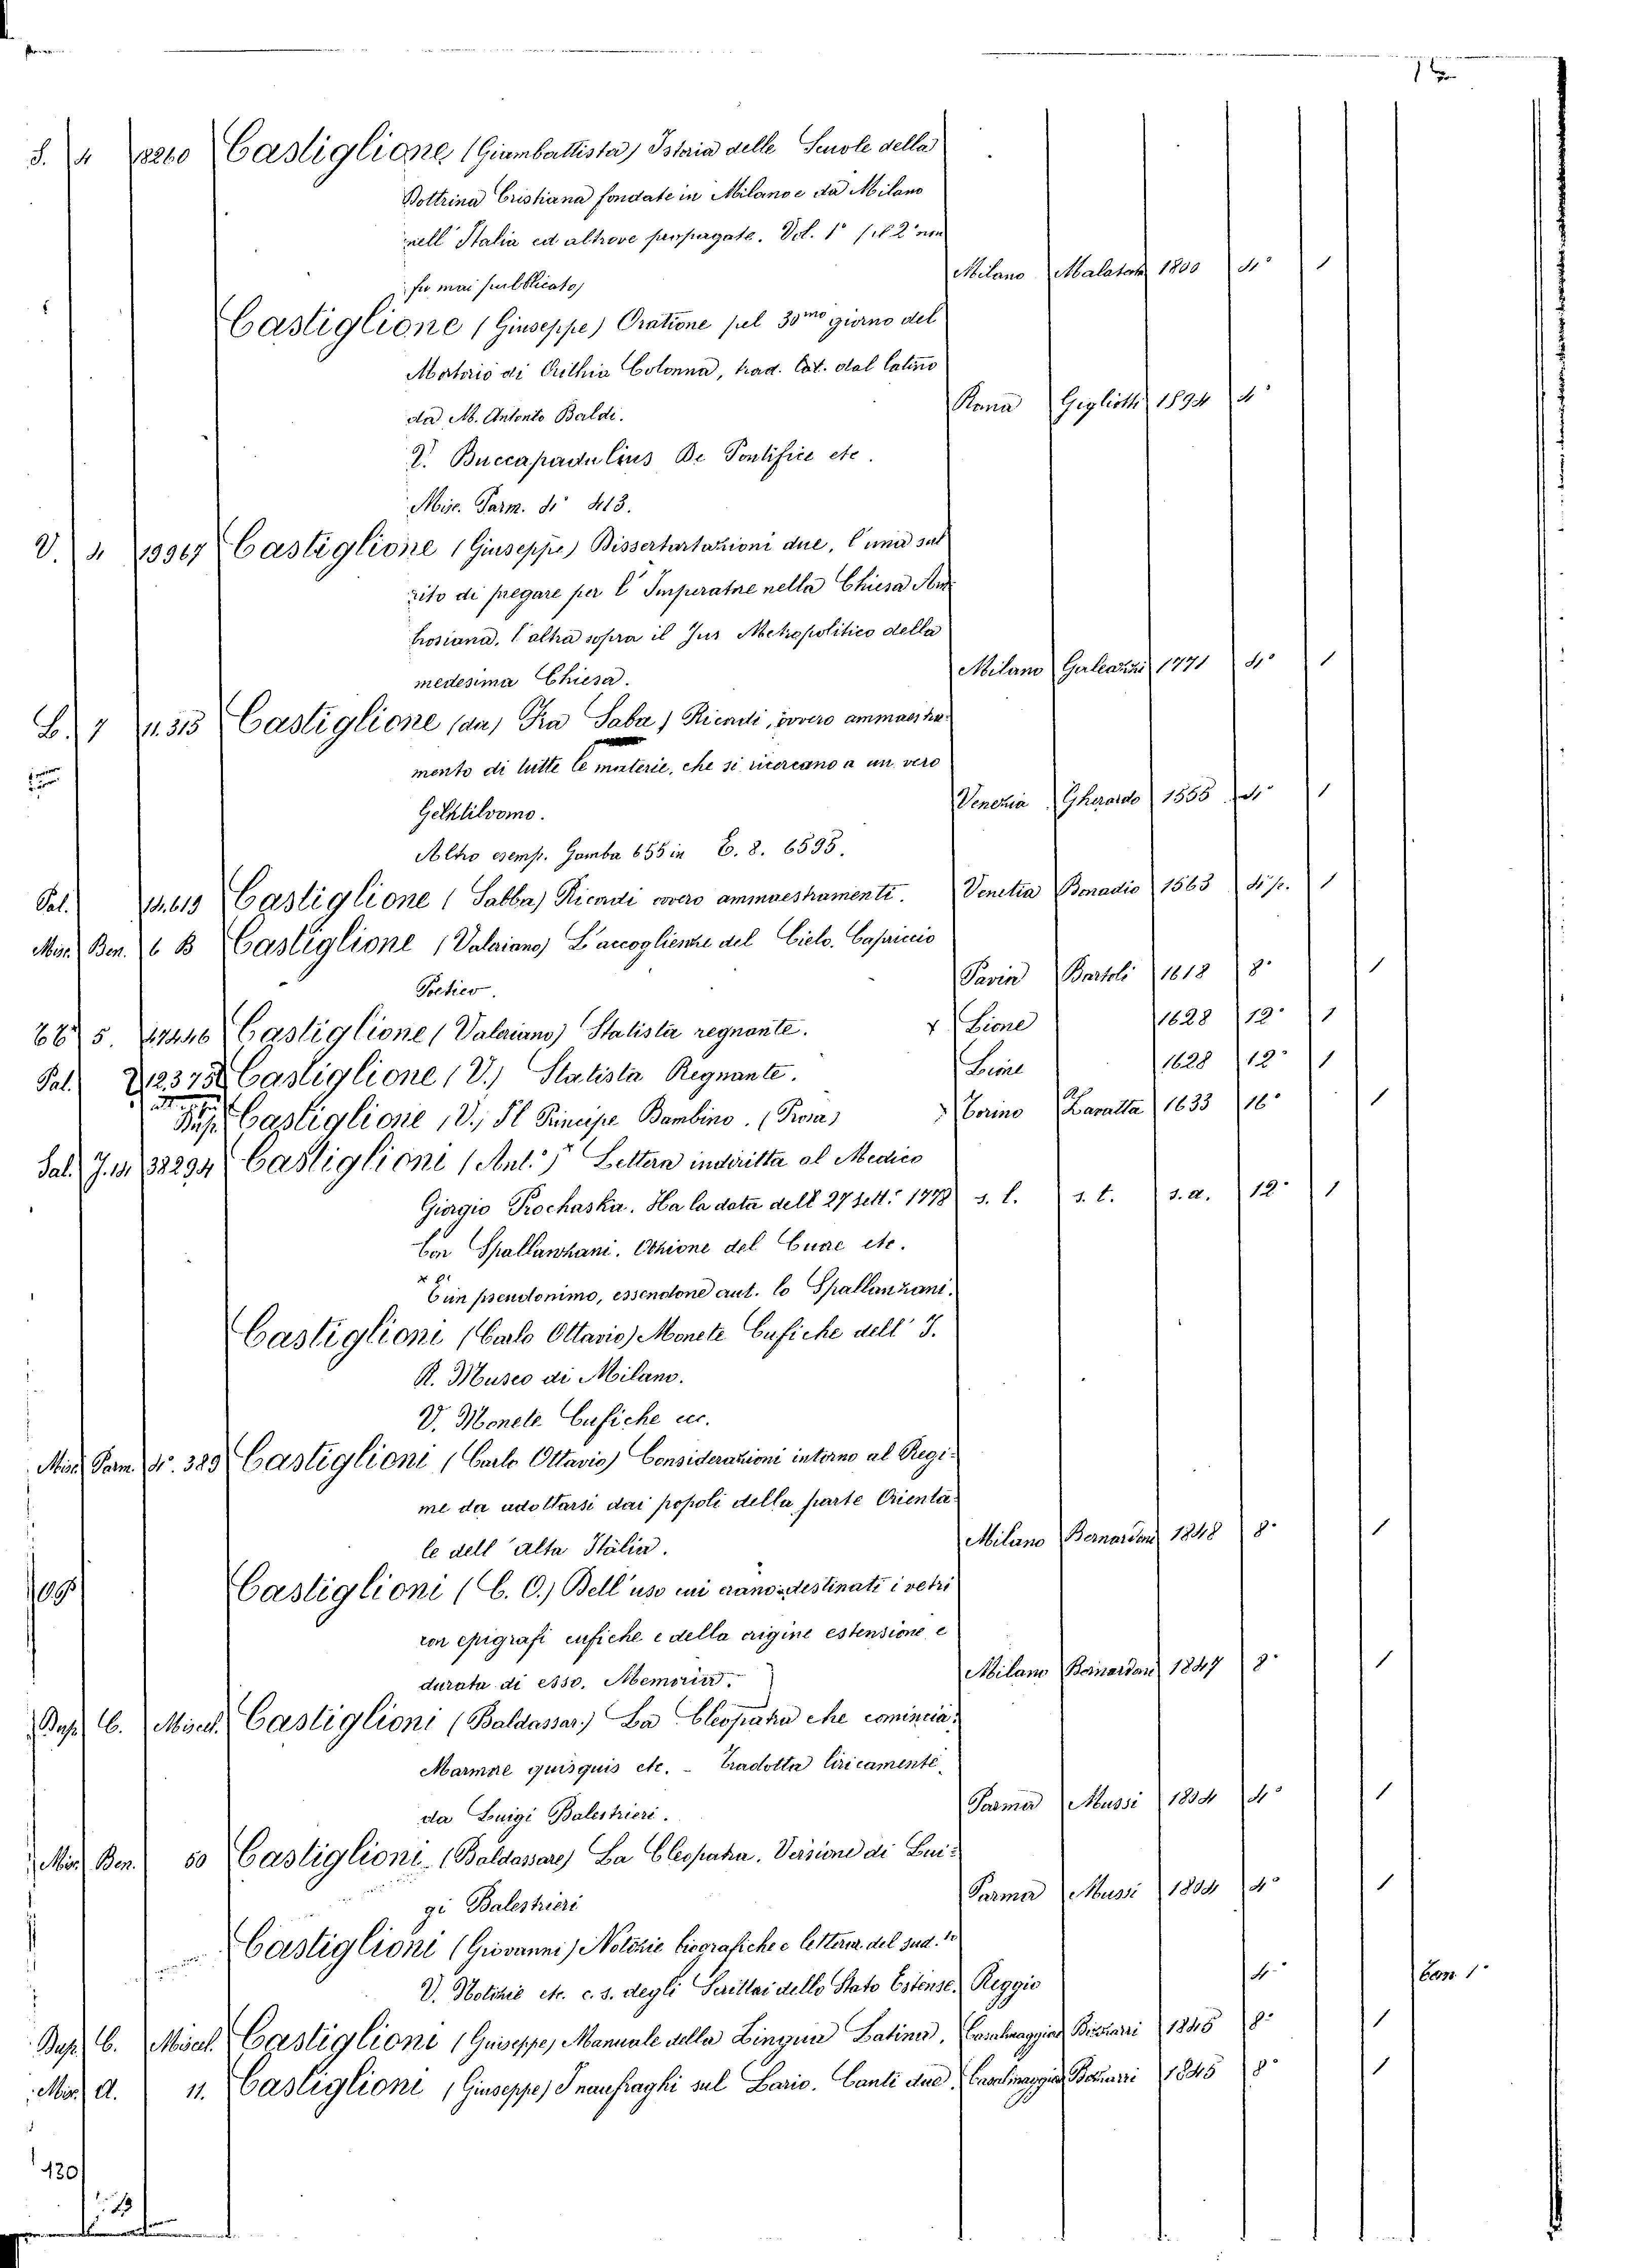 S. 4 18260 Castiglione (Giambattista) Istoria delle Scuole della
Dottrina Cristiana fondate in Milano e da Milano
nell' Italia ed altrove propagate. Vol. 1° (il 2° non
fu mai pubblicato) Milano 1800 4° 1
Castiglione (Giuseppe) Oratione pel 30mo giorno del
Mortorio di Orithia Colonna, trad. dal latino
da M. Antonio Baldi. Roma Gigliotti 1594 4°
V. Buccapadulius De Pontifice etc.
Misc. Parm. 4° 413.
V. 4 19967 Castiglione (Giuseppe) Dissertartazioni due, l'una sul
rito di pregare per l'Imperatore nella Chiesa Am-
brosiana, l'altra sopra il Jus Metropolitico della
medesima Chiesa. Milano Galeazzi 1771 4° 1
L. 7 11.315 Castiglione (da) Fra Saba) Ricordi, ovvero ammaestra-
mento di tutte le materie, che si ricercano a un vero
Gentilvomo. Venezia Gherardo 1555 4° 1
Altro esemp. Gamba 655 in E. 8. 6595.
Pal. 14.619 Castiglione (Sabba) Ricordi overo ammaestramenti. Venetia Bonadio 1563 4° p. 1
Misc. Ben. 6 B Castiglione (Valeriano) L'accoglienze del Cielo. Capriccio
Poetico. Pavia Bartoli 1618 8° 1
5. 17446 Castiglione (Valeriano) Statista regnante. x Lione 1628 12° 1
Pal. 12375 Castiglione (V.) Statista Regnante. Lione 1628 12° 1
Castiglione (V.) Il Principe Bambino. (Prosa) Torino Cavalla 1633 16° 1
Sal. J. 14. 38294 Castiglioni (Ant.°)* Lettera indiritta al Medico
Giorgio Prochaska. Ha la data dell 27 Sett.e 1778 s. l. s. t. s. a. 12° 1
Con Spallanzani. Azione del Cuore etc.
* È un pseudonimo, essendone aut. lo Spallanzani.
Castiglioni (Carlo Ottavio) Monete Cufiche dell' I.
R. Museo di Milano.
V. Monete Cufiche ecc.
Misc. Parm. 4°. 389 Castiglioni (Carlo Ottavio) Considerazioni intorno al Regi-
me da adottarsi dai popoli della parte Orienta-
le dell'alta Italia. Milano Bernardoni 1848 8° 1
109 Castiglioni (C. O.) Dell'uso cui erano destinati i vetri
con epigrafi cufiche e della origine estensione e
durata di esso. Memoria. Milano Bernardoni 1847 8° 1
Busp. C. Miscel. Castiglioni (Baldassar.) La Cleopatra che comincia:
Marmore quisquis etc. - Tradotta liricamente
da Luigi Balestrieri. Parma Mussi 1804 4° 1
Misc. Ben. 50 Castiglioni (Baldassare) La Cleopatra. Versione di Lui-
gi Balestrieri Parma Mussi 1804 4° 1
Castiglioni (Giovanni) Notizie biografiche e letterar. del sud.to
V. Notizie etc. c. s. degli Scrittori dello Stato Estense. Reggio 4° Con 1°
Busp. C. Miscel. Castiglioni (Guiseppe) Manuale della Lingua Latina. Casalmaggiore Bizzarri 1845 8° 1
Misc. A. 11. Castiglioni (Giuseppe) I naufraghi sul Lario. Canti due. Casalmaggiore Bizzarri 1845 8° 1
130